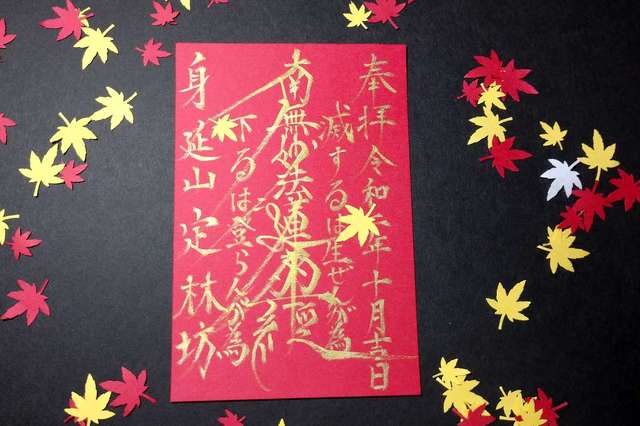 奉拝令和六年十月吉日
滅するは生ぜんが為
南無妙法蓮華経
下るは登らんが為
身延山定林坊